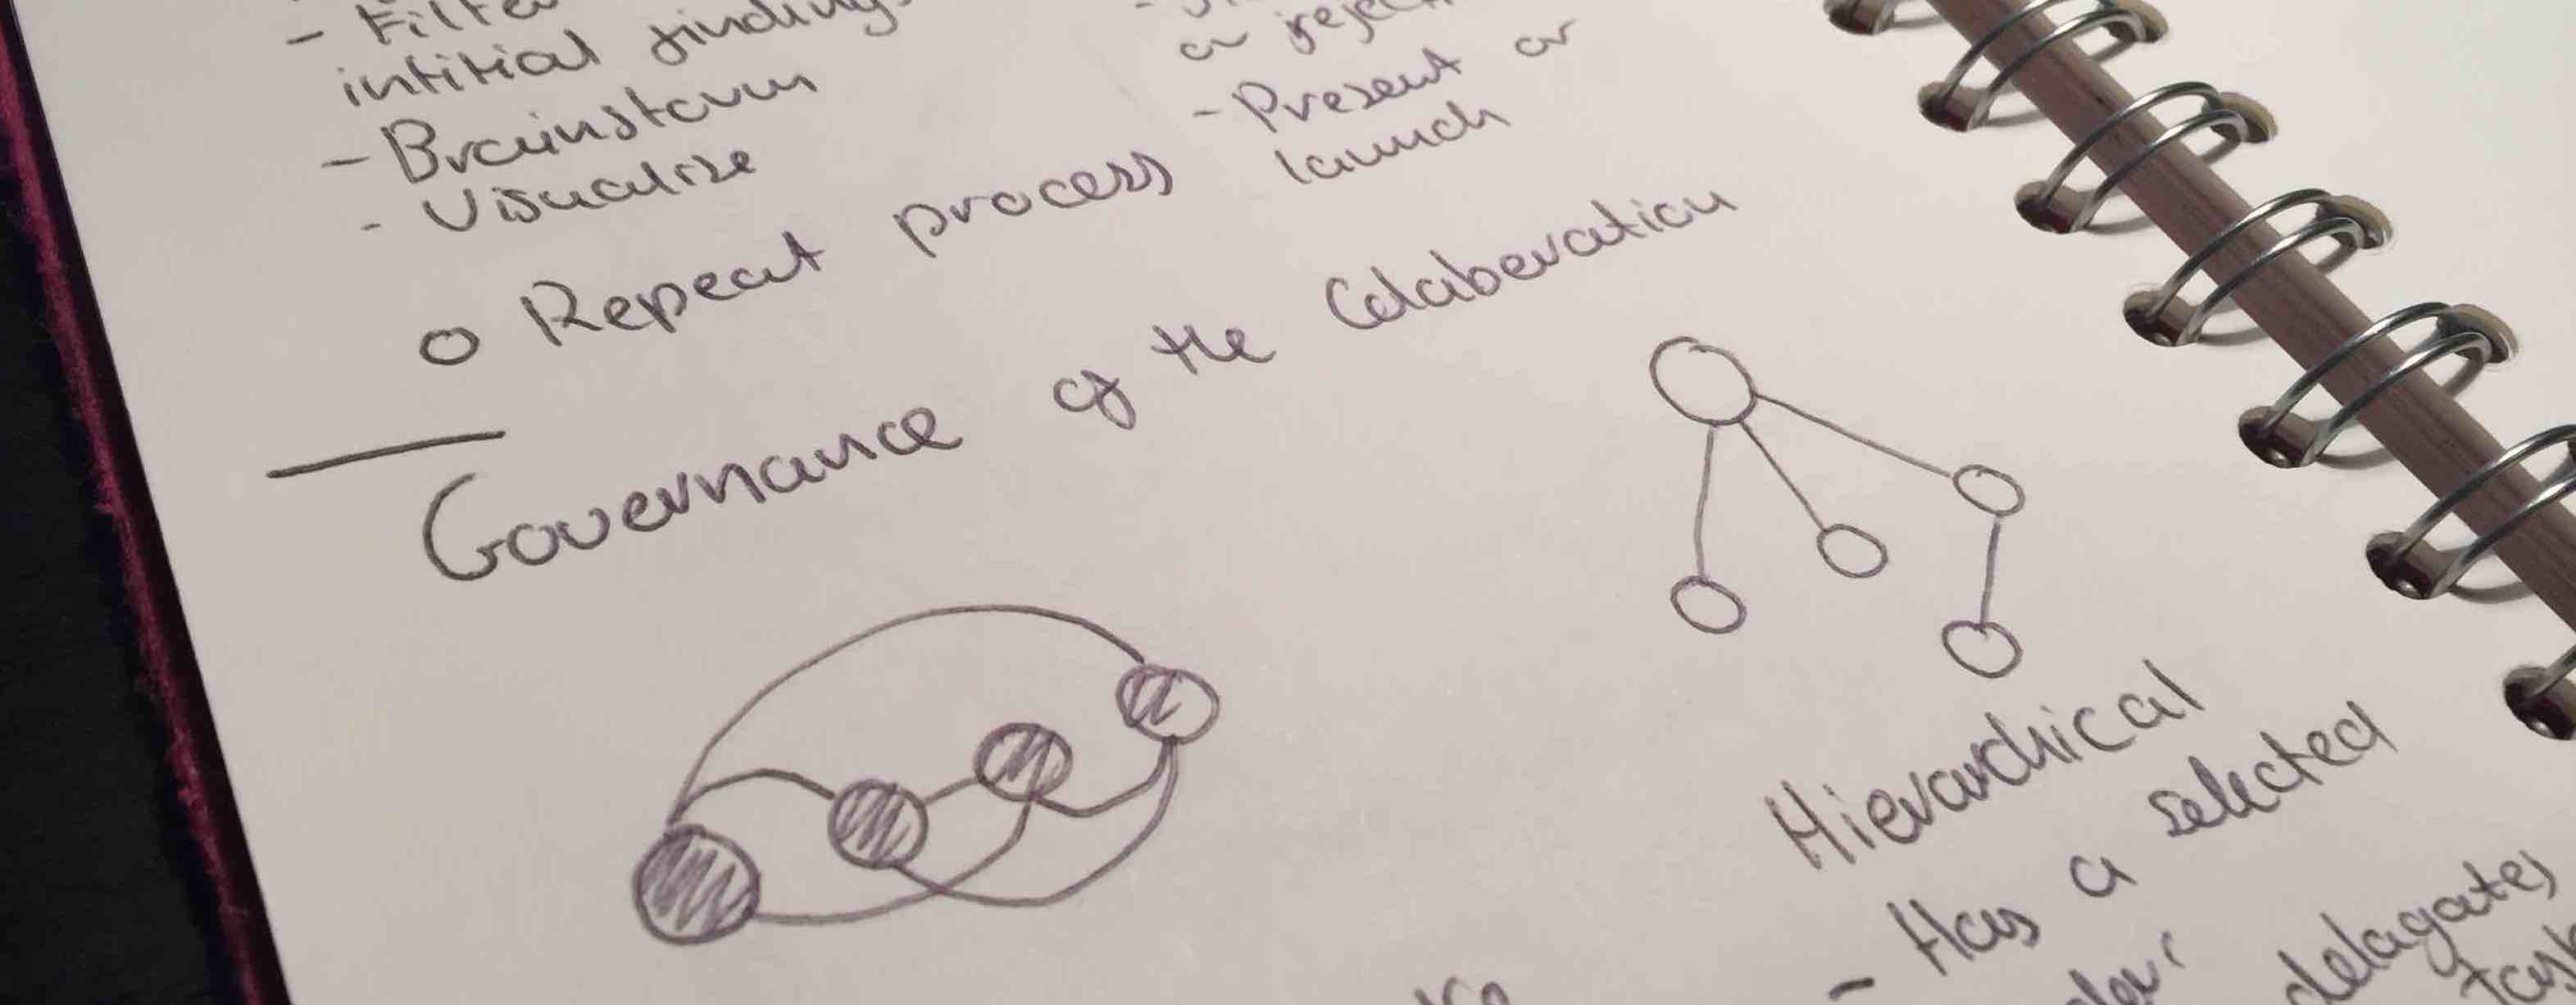 - Filte
intitial findings
- Brainstorm
- Visualise
or reject
- Present or
launch
o Repeat process
Governance of the Colaberation
Hierarchical
- Has a selected
delagates